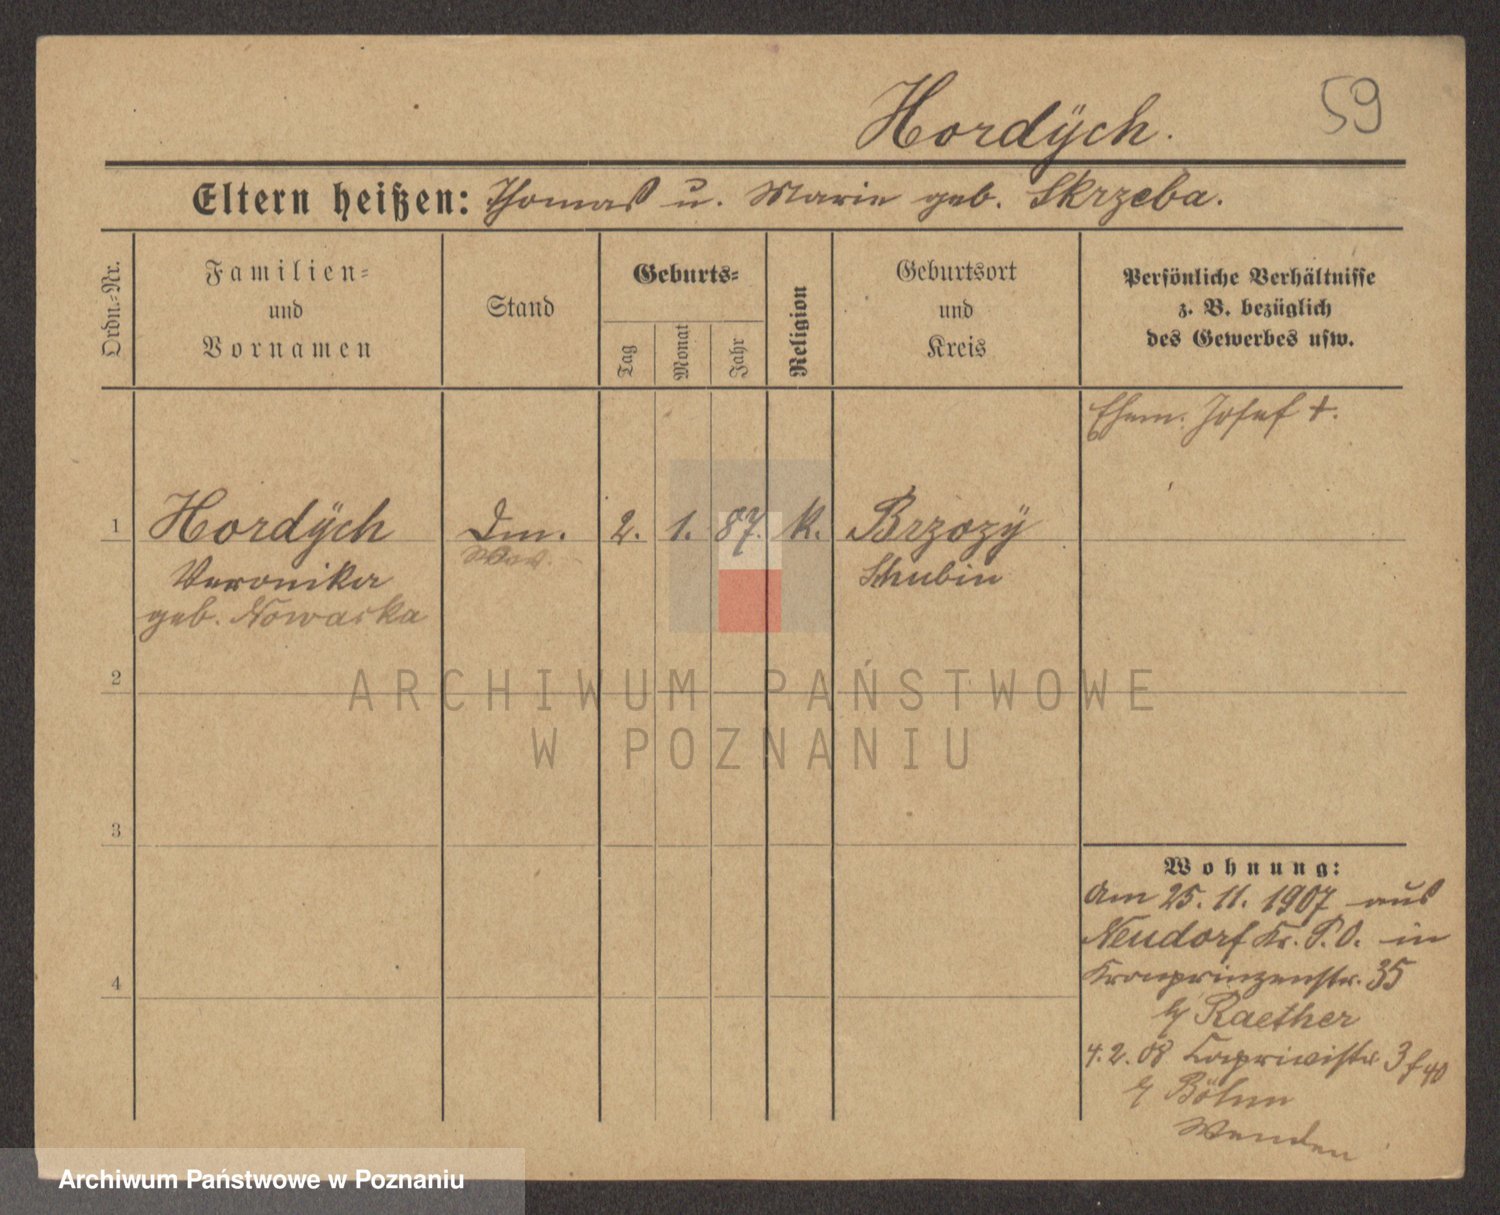 59
Hordÿch.
Eltern heißen: Thomas u. Marie geb. Skrzeba.
Ordn.-Nr.
Familien-
und
Vornamen
Stand
Geburts-
Tag
Monat
Jahr
Religion
Geburtsort
und
Kreis
Persönliche Verhältnisse
z. B. bezüglich
des Gewerbes usw.
Ehem. Josef +.
1 Hordÿch Dm. 2. 1. 87. K. Brzozÿ
Veronika Schubin
geb. Nowacka
2
3
4
Wohnung:
Am 25. 11. 1907 aus
Neudorf Kr. P. O. in
Kronprinzenstr. 35
b/ Raether
4. 2. 08 Kaprivistr. 3
b/ Böhm
Wenden
ARCHIWUM PAŃSTWOWE
W POZNANIU
Archiwum Państwowe w Poznaniu